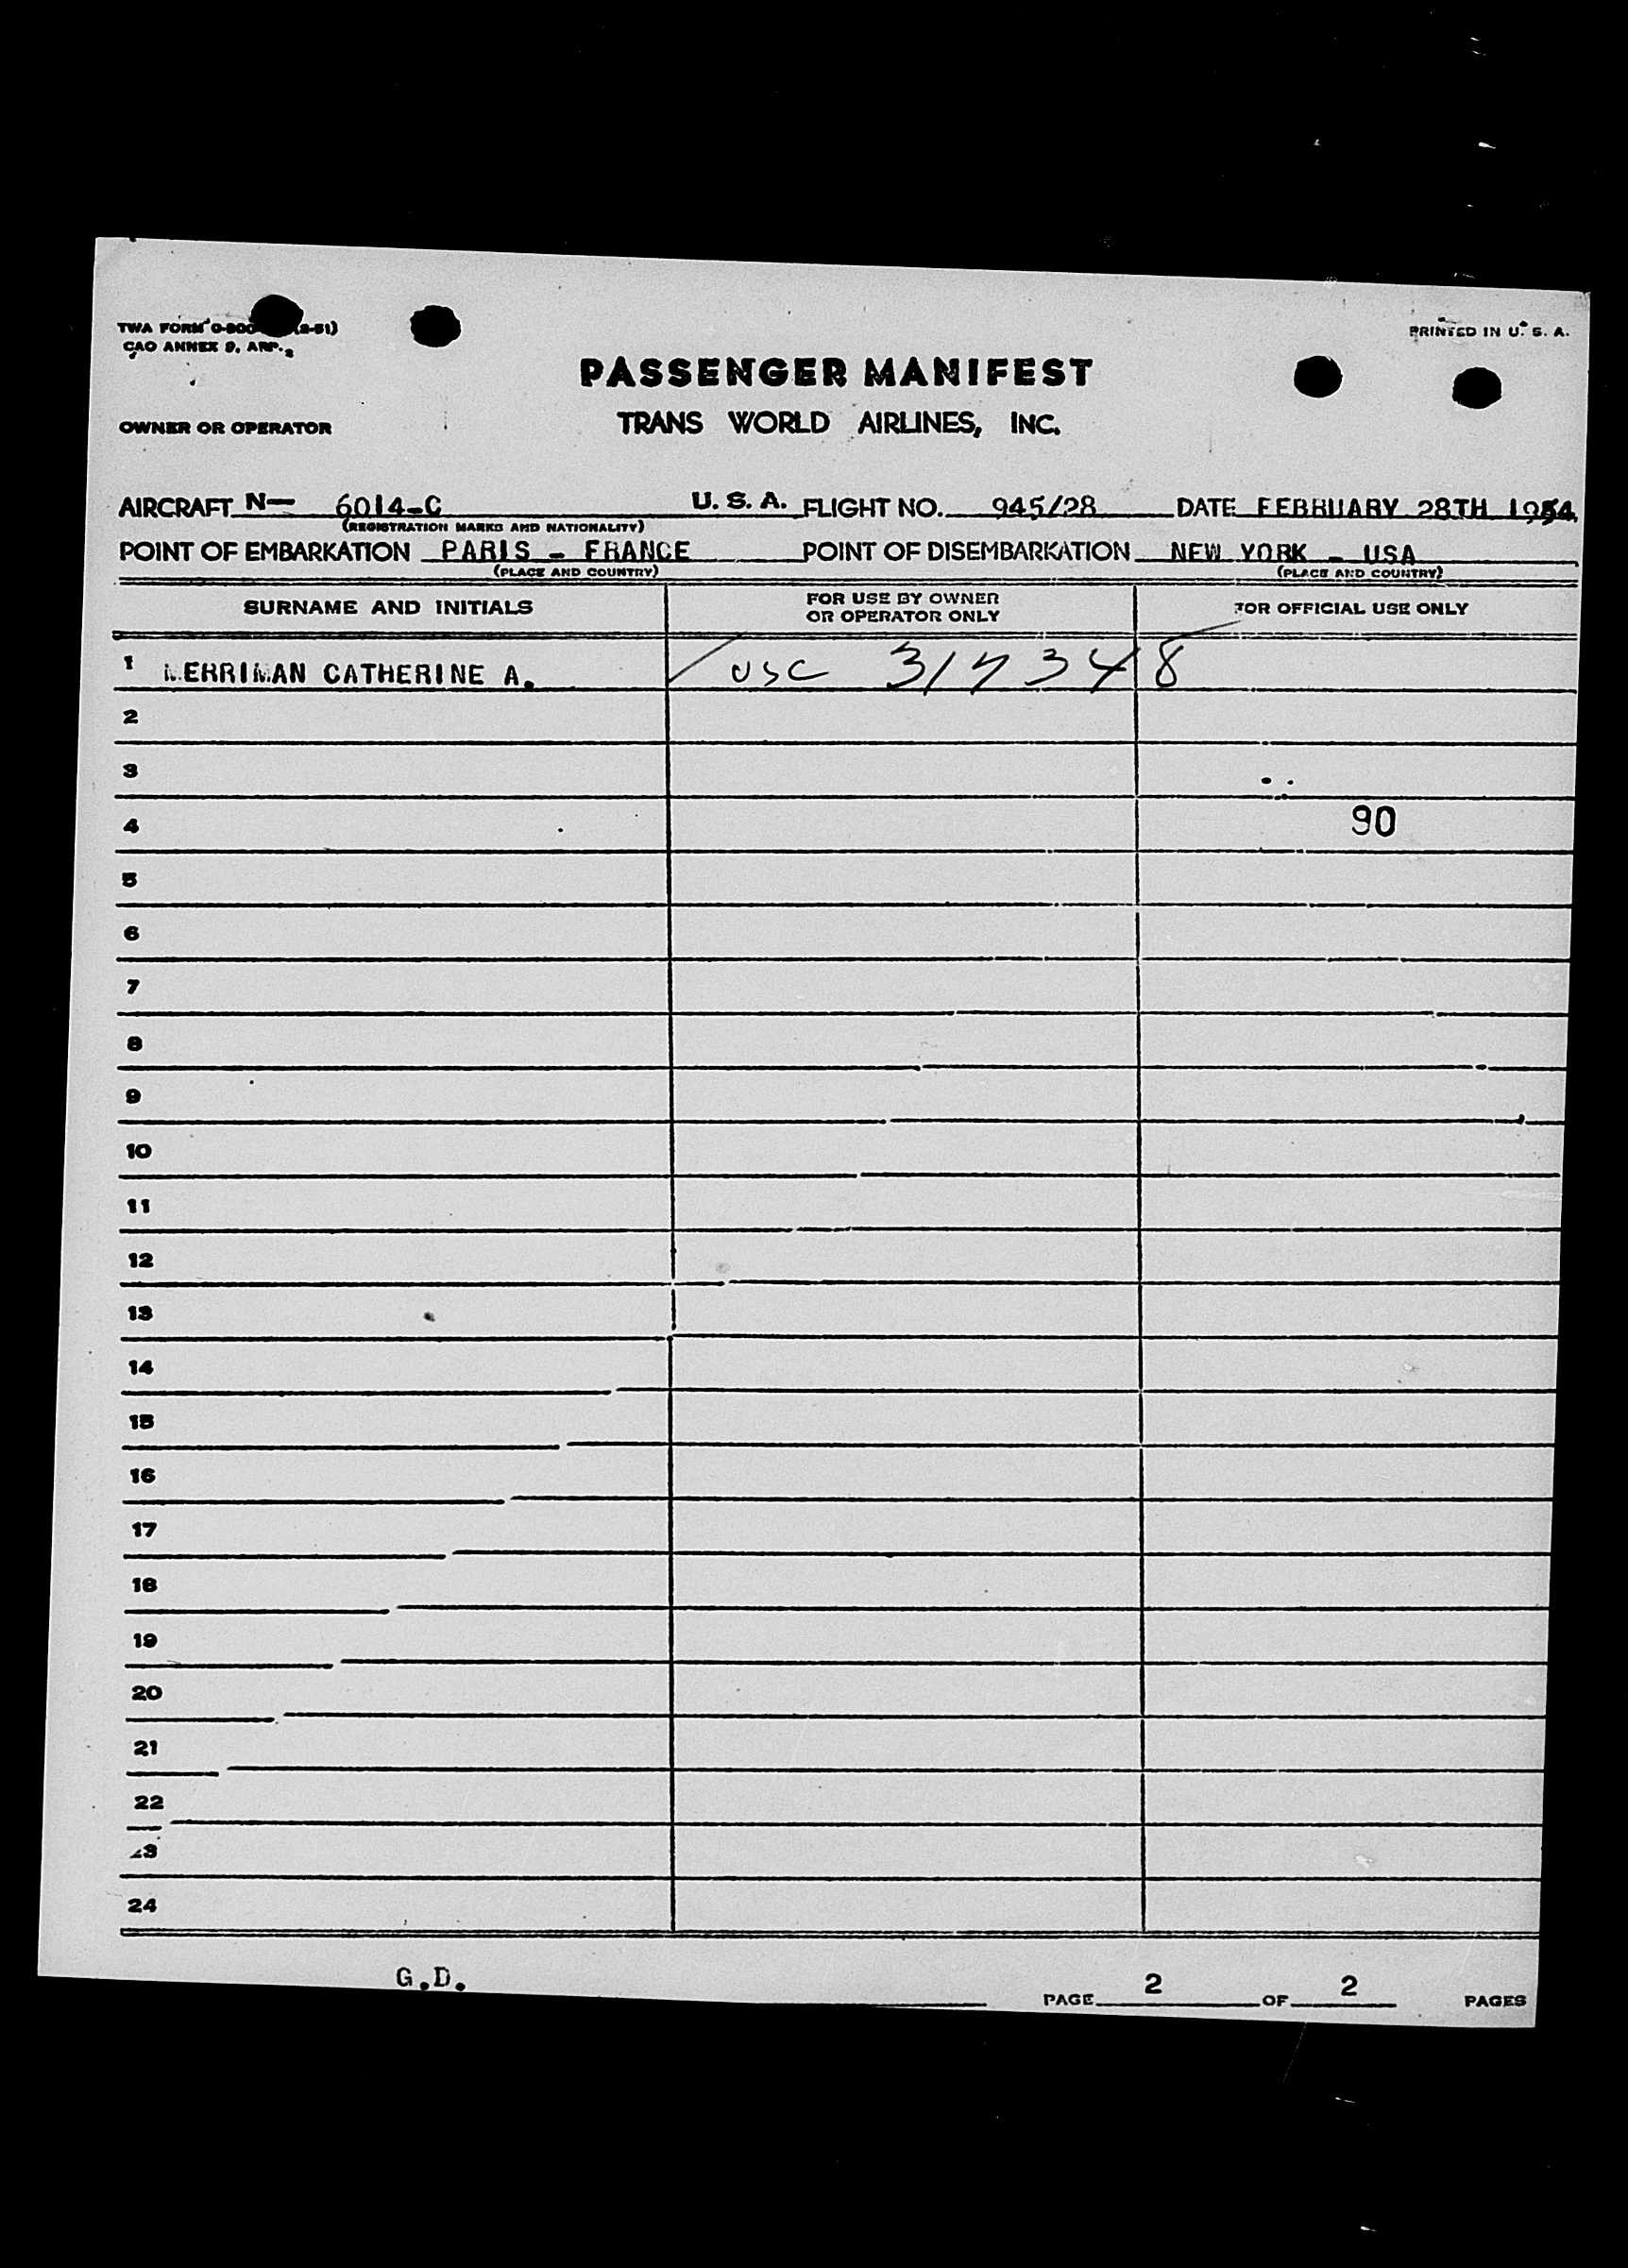 TWA FORM O-800 (2-51)
PRINTED IN U. S. A.
CAO ANNEX 9, APP. 2
PASSENGER MANIFEST
OWNER OR OPERATOR
TRANS WORLD AIRLINES, INC.
AIRCRAFT N— 6014-C U. S. A. FLIGHT NO. 945/28 DATE FEBRUARY 28TH 1954
(REGISTRATION MARKS AND NATIONALITY)
POINT OF EMBARKATION PARIS - FRANCE POINT OF DISEMBARKATION NEW YORK - USA
(PLACE AND COUNTRY) (PLACE AND COUNTRY)
SURNAME AND INITIALS
FOR USE BY OWNER
OR OPERATOR ONLY
FOR OFFICIAL USE ONLY
1 MERRIMAN CATHERINE A. USC 317348
2
3
4 90
5
6
7
8
9
10
11
12
13
14
15
16
17
18
19
20
21
22
23
24
G.D.
PAGE 2 OF 2 PAGES